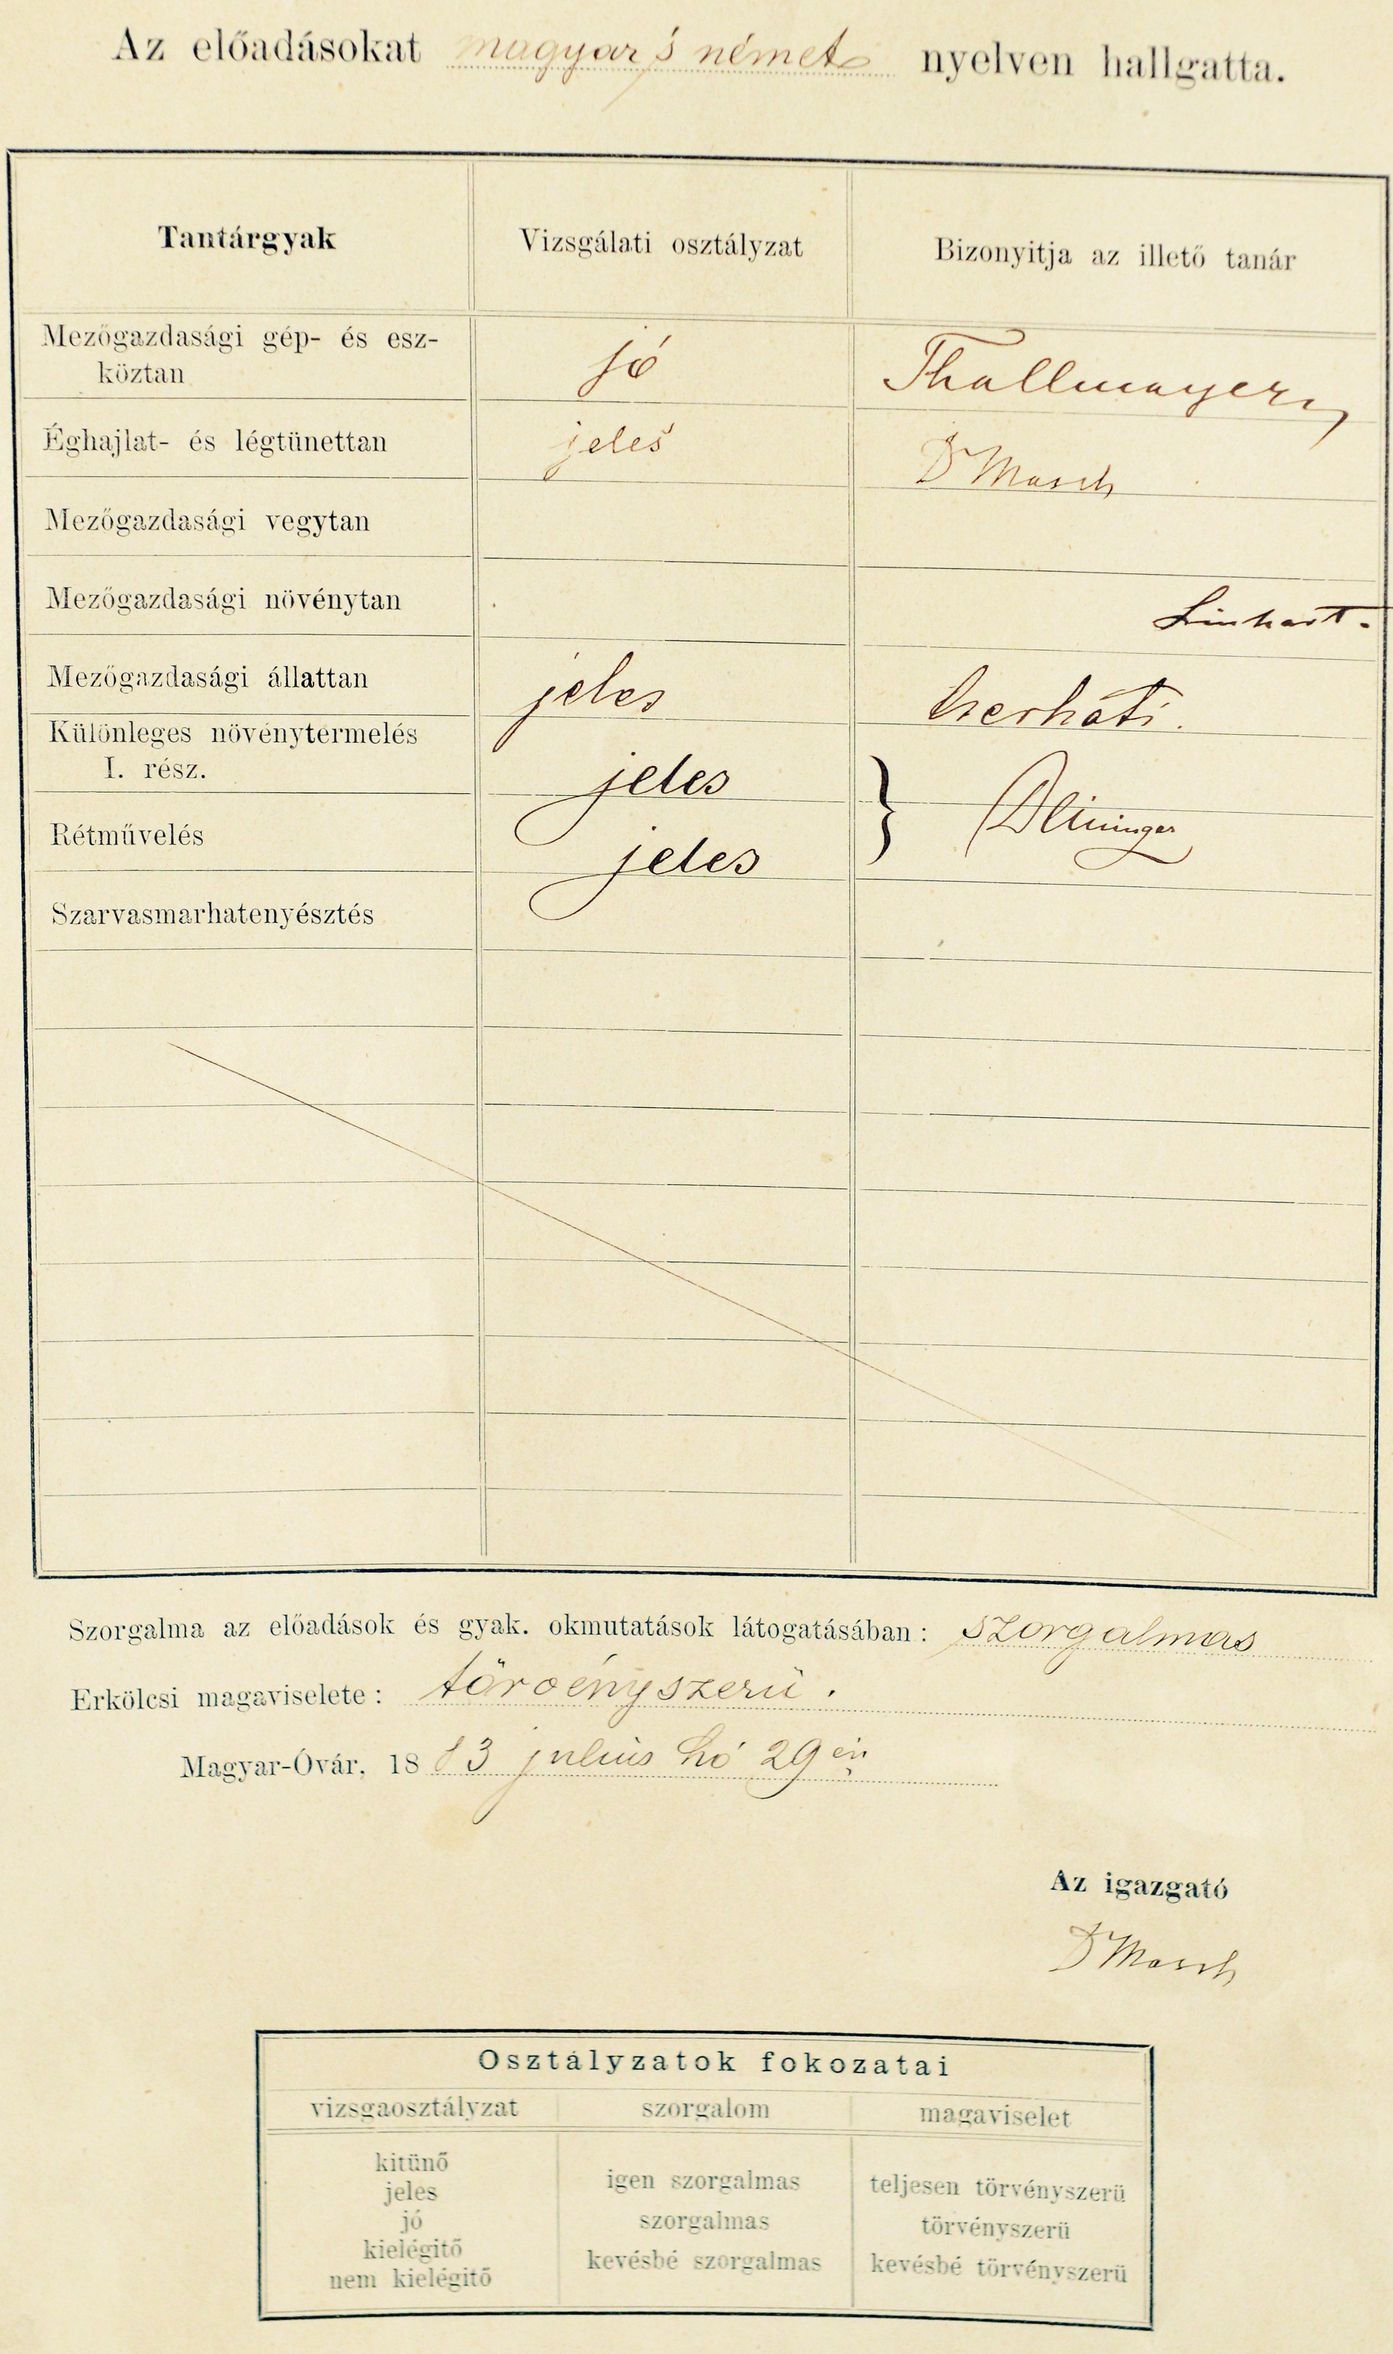 Az előadásokat magyar s német nyelven hallgatta.
Tantárgyak Vizsgálati osztályzat Bizonyitja az illető tanár
Mezőgazdasági gép- és esz-
köztan jó Thallmayer
Éghajlat- és légtünettan jeles Dr Masch
Mezőgazdasági vegytan
Mezőgazdasági növénytan Linhart.
Mezőgazdasági állattan jeles Cserháti.
Különleges növénytermelés
I. rész. jeles } Deininger
Rétművelés jeles
Szarvasmarhatenyésztés
Szorgalma az előadások és gyak. okmutatások látogatásában: szorgalmas
Erkölcsi magaviselete: törvényszerü.
Magyar-Óvár, 1883 julius hó 29én
Az igazgató
Dr Masch
Osztályzatok fokozatai
vizsgaosztályzat szorgalom magaviselet
kitünő
jeles igen szorgalmas teljesen törvényszerü
jó szorgalmas törvényszerü
kielégitő kevésbé szorgalmas kevésbé törvényszerü
nem kielégitő